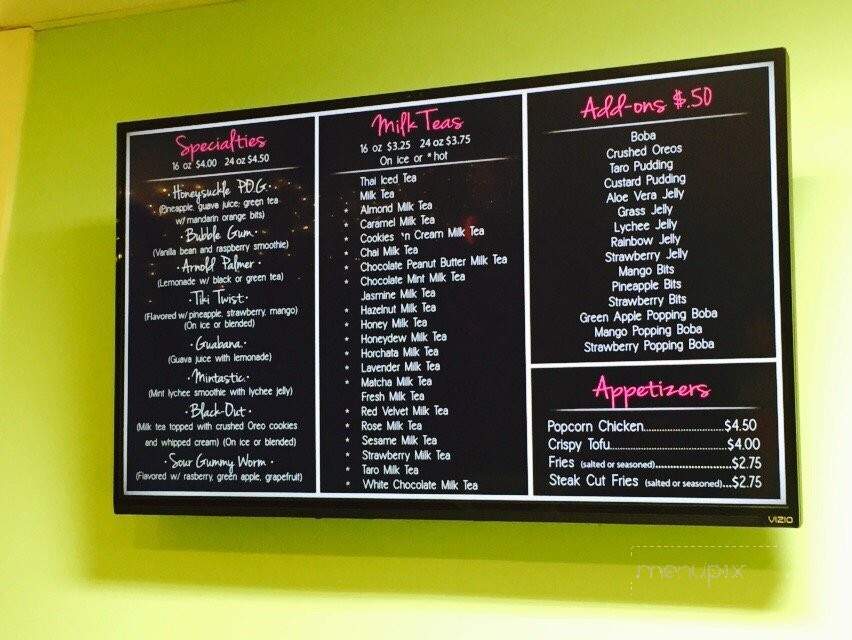 Specialties
16 oz $4.00 24 oz $4.50
· Honeysuckle P.O.G. ·
(Pineapple, guava juice, green tea
w/ mandarin orange bits)
· Bubble Gum ·
(Vanilla bean and raspberry smoothie)
· Arnold Palmer ·
(Lemonade w/ black or green tea)
· Tiki Twist ·
(Flavored w/ pineapple, strawberry, mango)
(On ice or blended)
· Guabana ·
(Guava juice with lemonade)
· Mintastic ·
(Mint lychee smoothie with lychee jelly)
· Black-Out ·
(Milk tea topped with crushed Oreo cookies
and whipped cream) (On ice or blended)
· Sour Gummy Worm ·
(Flavored w/ rasberry, green apple, grapefruit)
Milk Teas
16 oz $3.25 24 oz $3.75
On ice or *hot
Thai Iced Tea
Milk Tea
* Almond Milk Tea
* Caramel Milk Tea
* Cookies 'n Cream Milk Tea
* Chai Milk Tea
* Chocolate Peanut Butter Milk Tea
* Chocolate Mint Milk Tea
Jasmine Milk Tea
* Hazelnut Milk Tea
* Honey Milk Tea
* Honeydew Milk Tea
* Horchata Milk Tea
* Lavender Milk Tea
* Matcha Milk Tea
Fresh Milk Tea
* Red Velvet Milk Tea
* Rose Milk Tea
* Sesame Milk Tea
* Strawberry Milk Tea
* Taro Milk Tea
* White Chocolate Milk Tea
Add-ons $.50
Boba
Crushed Oreos
Taro Pudding
Custard Pudding
Aloe Vera Jelly
Grass Jelly
Lychee Jelly
Rainbow Jelly
Strawberry Jelly
Mango Bits
Pineapple Bits
Strawberry Bits
Green Apple Popping Boba
Mango Popping Boba
Strawberry Popping Boba
Appetizers
Popcorn Chicken....................$4.50
Crispy Tofu............................$4.00
Fries (salted or seasoned)..................$2.75
Steak Cut Fries (salted or seasoned)...$2.75
VIZIO
menupix